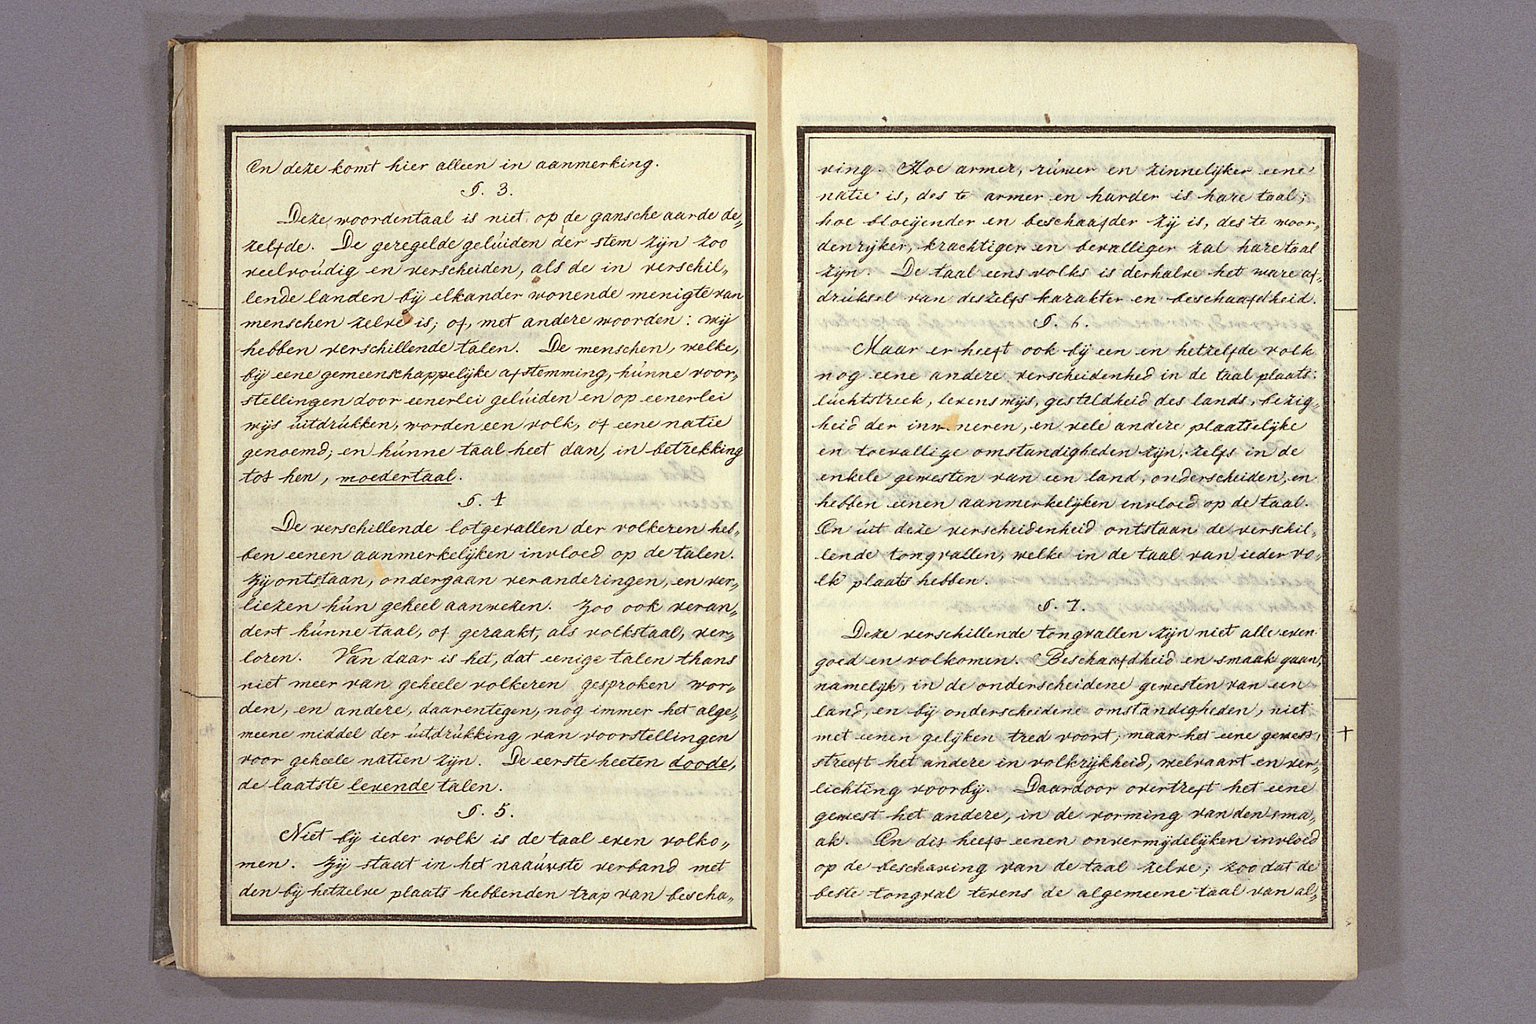 En deze komt hier alleen in aanmerking.
§. 3.
Deze woordentaal is niet op de gansche aarde de„
zelfde. De geregelde gelúiden der stem zijn zoo
veelvoúdig en verscheiden, als de in verschil„
lende landen bij elkander wonende menigte van
menschen zelve is; of, met andere woorden: wij
hebben verschillende talen. De menschen, welke,
bij eene gemeenschappelijke afstemming, húnne voor„
stellingen door eenerlei gelúiden en op eenerlei
wijs úitdrúkken, worden een volk, of eene natie
genoemd; en húnne taal heet dan, in betrekking
tot hen, moedertaal.
§. 4
De verschillende lotgevallen der volkeren heb„
ben eenen aanmerkelijken invloed op de talen.
Zij ontstaan, ondergaan veranderingen, en ver„
liezen hún geheel aanwezen. Zoo ook veran„
dert húnne taal, of geraakt, als volkstaal, ver„
loren. Van daar is het, dat eenige talen thans
niet meer van geheele volkeren gesproken wor„
den, en andere, daarentegen, nog immer het alge„
meene middel der úitdrúkking van voorstellingen
voor geheele natien zijn. De eerste heeten doode,
de laatste levende talen.
§. 5.
Niet bij ieder volk is de taal even volko„
men. Zij staat in het naaúwste verband met
den bij hetzelve plaats hebbenden trap van bescha„
ving. Hoe armer, rúwer en zinnelijker eene
natie is, des te armer en harder is hare taal;
hoe bloeijender en beschaafder zij is, des te woor„
denrijker, krachtiger en bevalliger zal hare taal
zijn. De taal eens volks is derhalve het ware af„
drúksel van deszelfs karakter en beschaafdheid.
§. 6.
Maar er heeft ook bij een en hetzelfde volk
nog eene andere verscheidenheid in de taal plaats:
lúchtstreek, levenswijs, gesteldheid des lands, bezig„
heid der inwoneren, en vele andere plaatselijke
en toevallige omstandigheden zijn, zelfs in de
enkele gewesten van een land, onderscheiden, en
hebben eenen aanmerkelijken invloed op de taal.
En úit deze verscheidenheid ontstaan de verschil„
lende tongvallen, welke in de taal van ieder vo„
lk plaats hebben.
§. 7.
Deze verschillende tongvallen zijn niet alle even
goed en volkomen. Beschaafdheid en smaak gaan,
namelijk, in de onderscheidene gewesten van een
land, en bij onderscheidene omstandigheden, niet
met eenen gelijken tred voort, maar het eene gewest
streeft het andere in volkrijkheid, welvaart en ver„
lichting voorbij. Daardoor overtreft het eene
gewest het andere, in de vorming van den sma„
ak. En dit heeft eenen onvermijdelijken invloed
op de beschaving van de taal zelve; zoo dat de
beste tongval tevens de algemeene taal van al„